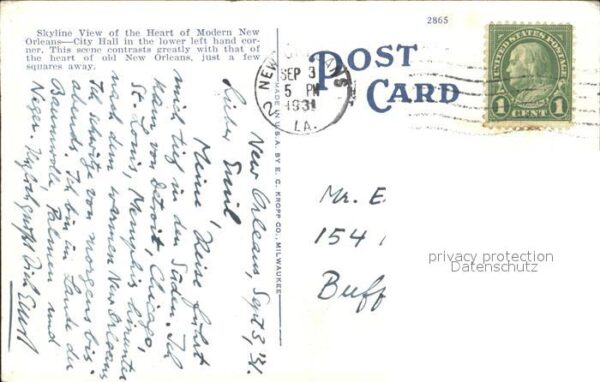 Skyline View of the Heart of Modern New
Orleans—City Hall in the lower left hand cor-
ner. This scene contrasts greatly with that of
the heart of old New Orleans, just a few
squares away.
2865
POST
CARD
NEW ORLEANS
SEP 3
5 PM
1931
LA.
2
UNITED STATES POSTAGE
FRANKLIN
1 CENT 1
MADE IN U.S.A. BY E. C. KROPP CO., MILWAUKEE
New Orleans, Sept 3, 31.
Lieber Emil,
Meine Reise führt
mich tief in den Süden. Ich
kam von Detroit, Chicago,
St. Louis, Memphis hinunter
nach dem warmen New Orleans
Ich schwitze von morgens bis
abends. Ich bin im Lande der
Baumwolle, Palmen und
Neger. Herzlich grüßt Dich Ernst
Mr. E
154
Buff
privacy protection
Datenschutz